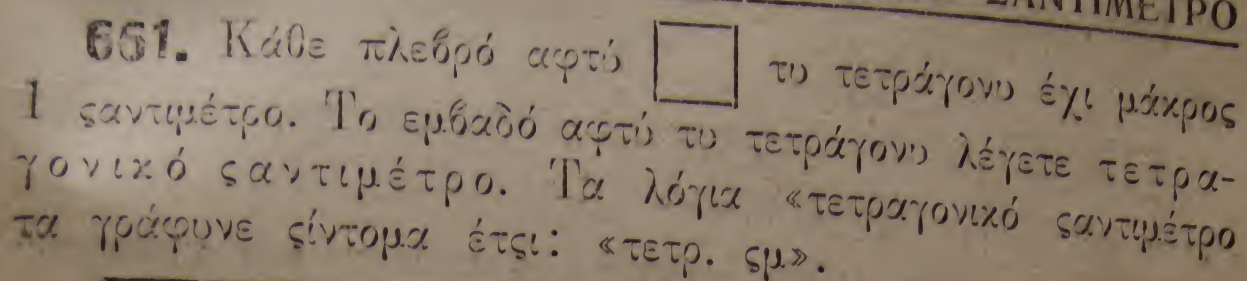 ΣΑΝΤΙΜΕΤΡΟ
661. Κάθε πλεβρό αφτύ τυ τετράγονυ έχι μάκρος
1 ςαντιμέτρο. Το εμβαδό αφτύ τυ τετράγονυ λέγετε τετρα-
γονικό ςαντιμέτρο. Τα λόγια «τετραγονικό ςαντιμέτρο
τα γράφυνε ςίντομα έτςι: «τετρ. ςμ».